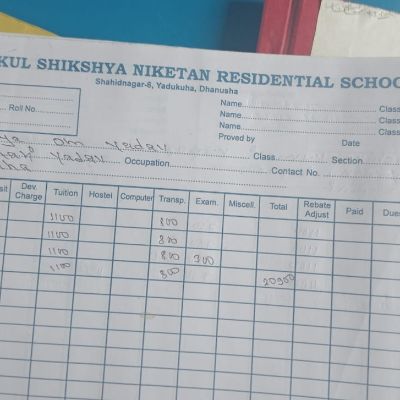 KUL SHIKSHYA NIKETAN RESIDENTIAL SCHOO
Shahidnagar-8, Yadukuha, Dhanusha
Name Class
Roll No. Name Class
Name Class
Proved by Date
om yadav Class Section
yadav Occupation Contact No.
Dev. Charge Tuition Hostel Computer Transp. Exam. Miscell. Total Rebate Adjust Paid Dues
1100 800
1100 800
1100 800 300
1100 800 20900